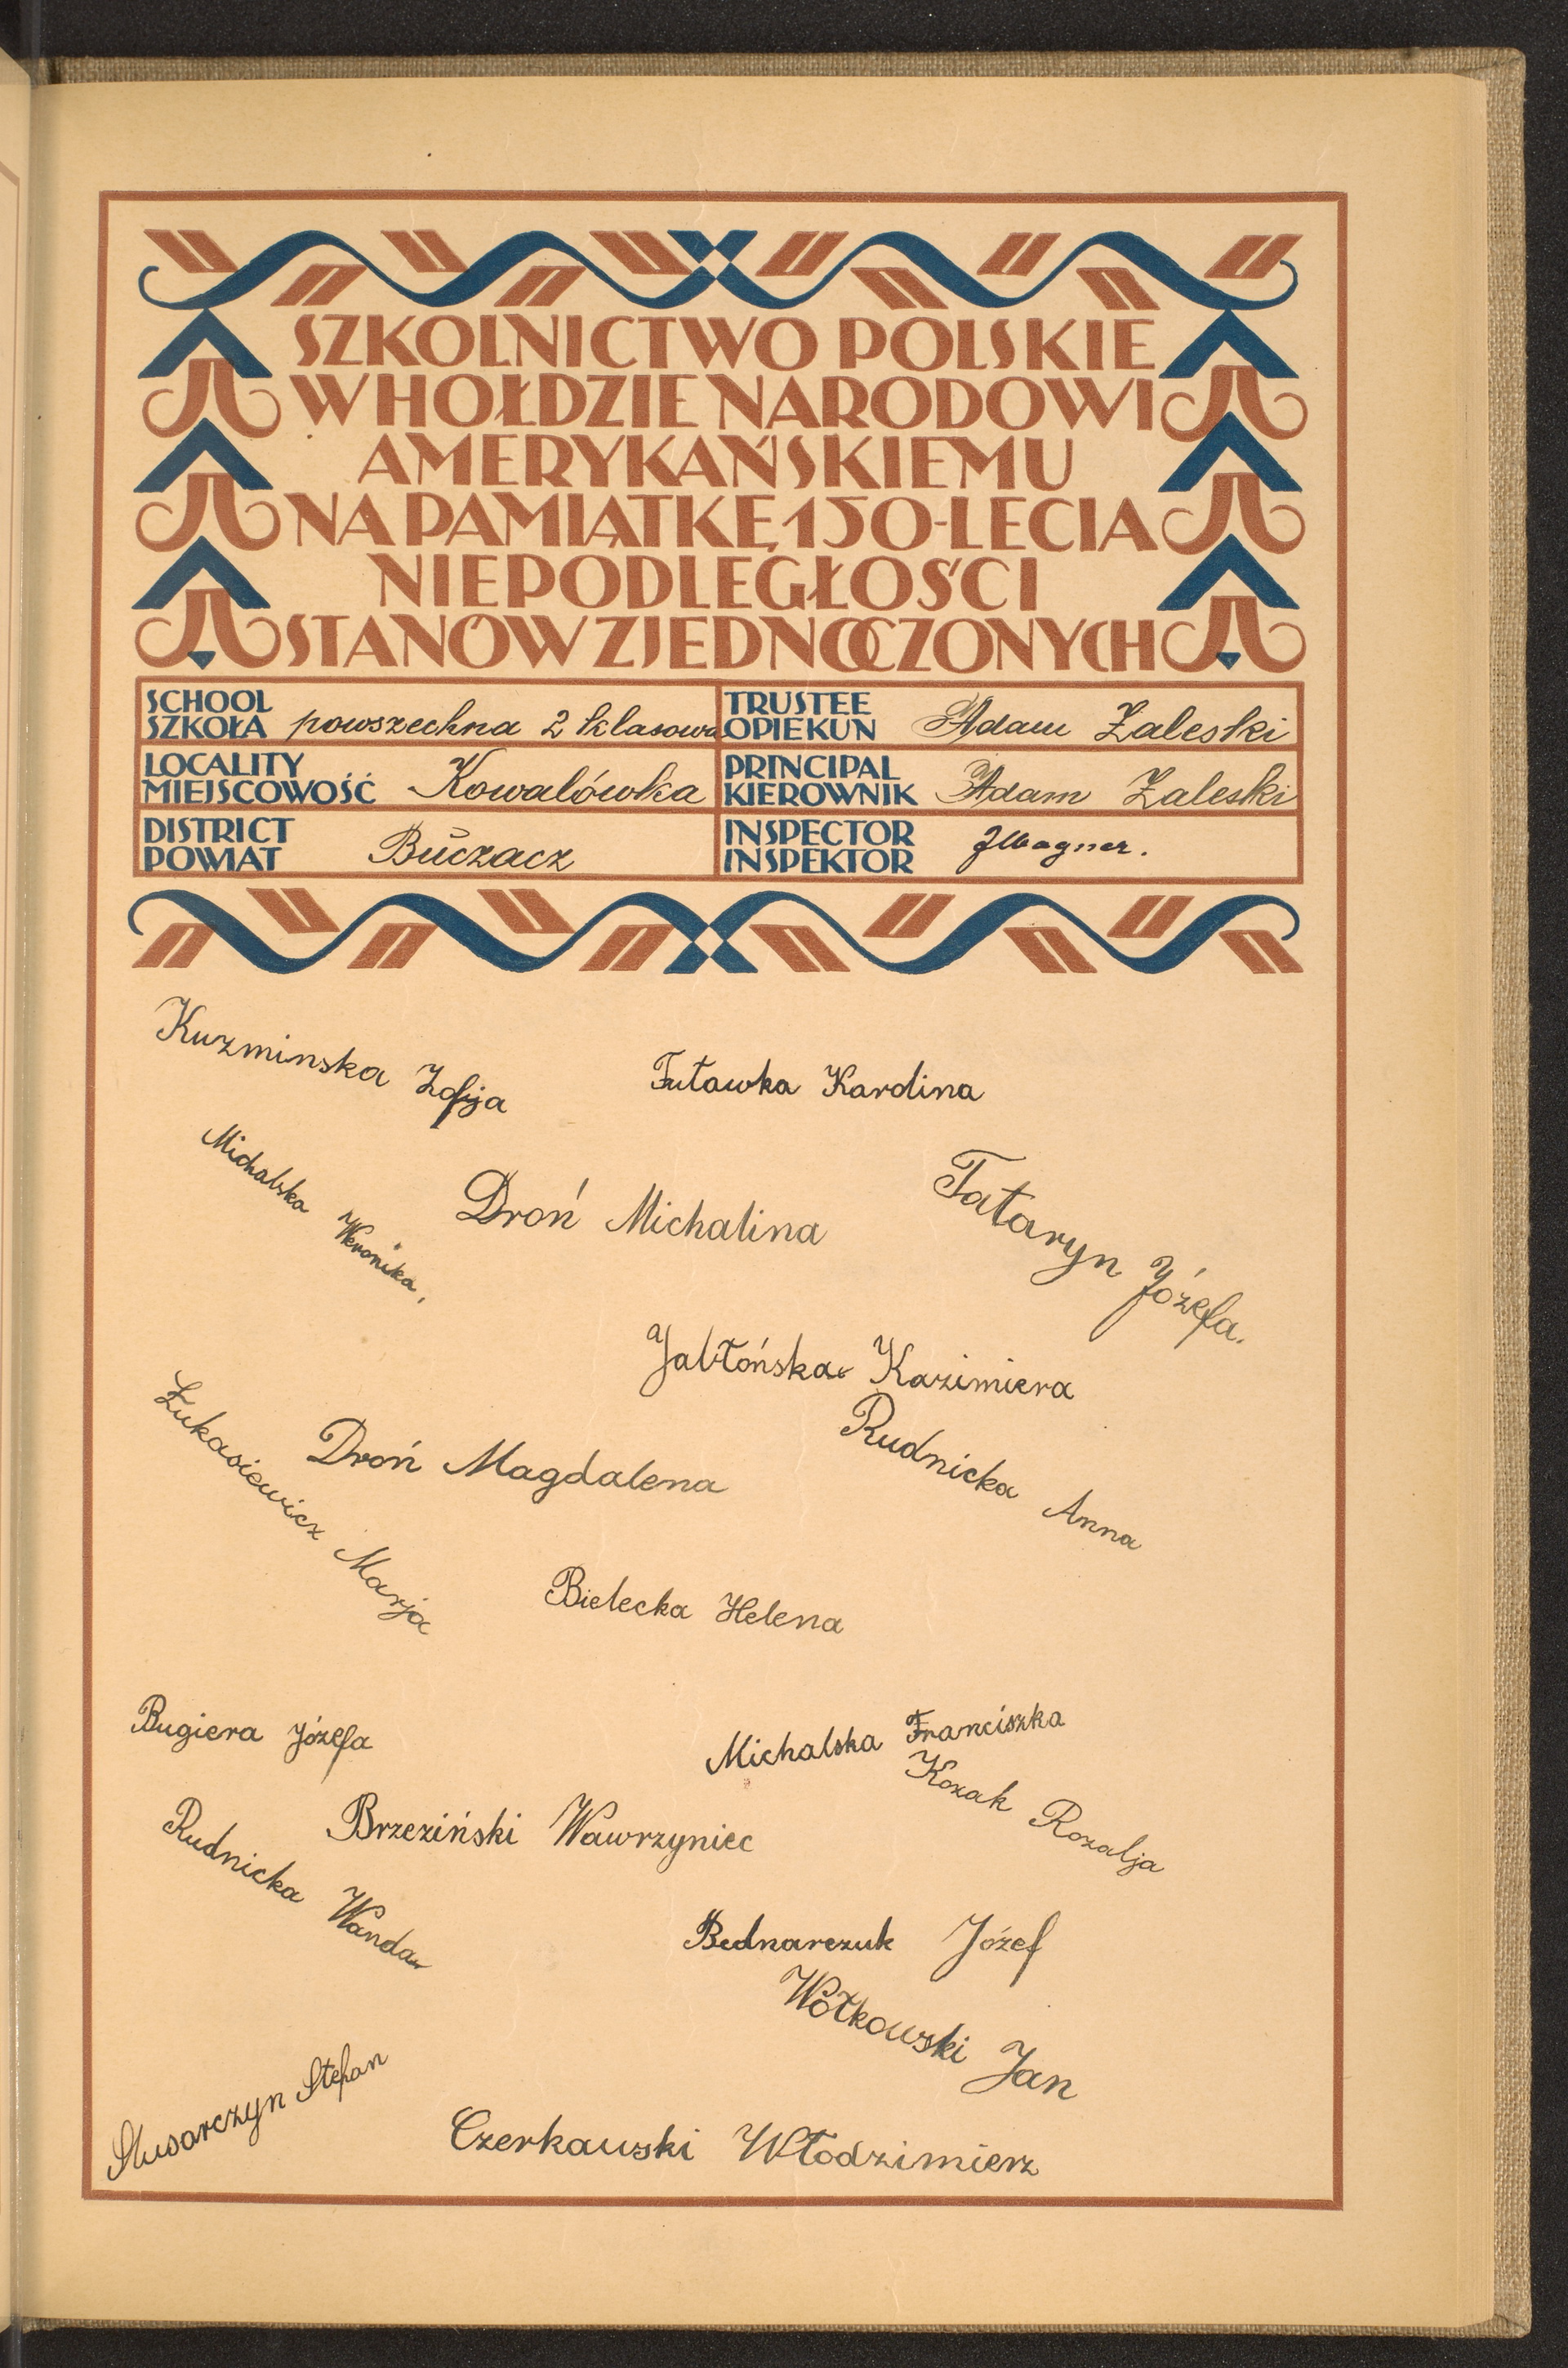 SZKOLNICTWO POLSKIE
W HOŁDZIE NARODOWI
AMERYKAŃSKIEMU
NA PAMIĄTKĘ 150-LECIA
NIEPODLEGŁOŚCI
STANÓW ZJEDNOCZONYCH
SCHOOL
SZKOŁA powszechna 2 klasowa
TRUSTEE
OPIEKUN Adam Zaleski
LOCALITY
MIEJSCOWOŚĆ Kowalówka
PRINCIPAL
KIEROWNIK Adam Zaleski
DISTRICT
POWIAT Buczacz
INSPECTOR
INSPEKTOR JWagner.
Kuzminska Zofija
Futawka Karolina
Michalska Weronika,
Droń Michalina
Tataryn Józefa.
Jabłońska Kazimiera
Łukasiewicz Marja
Droń Magdalena
Rudnicka Anna
Bielecka Helena
Bugiera Józefa
Michalska Franciszka
Kozak Rozalja
Brzeziński Wawrzyniec
Rudnicka Wanda
Bednarczuk Józef
Wołkowski Jan
Slusarczyn Stefan
Czerkawski Włodzimierz